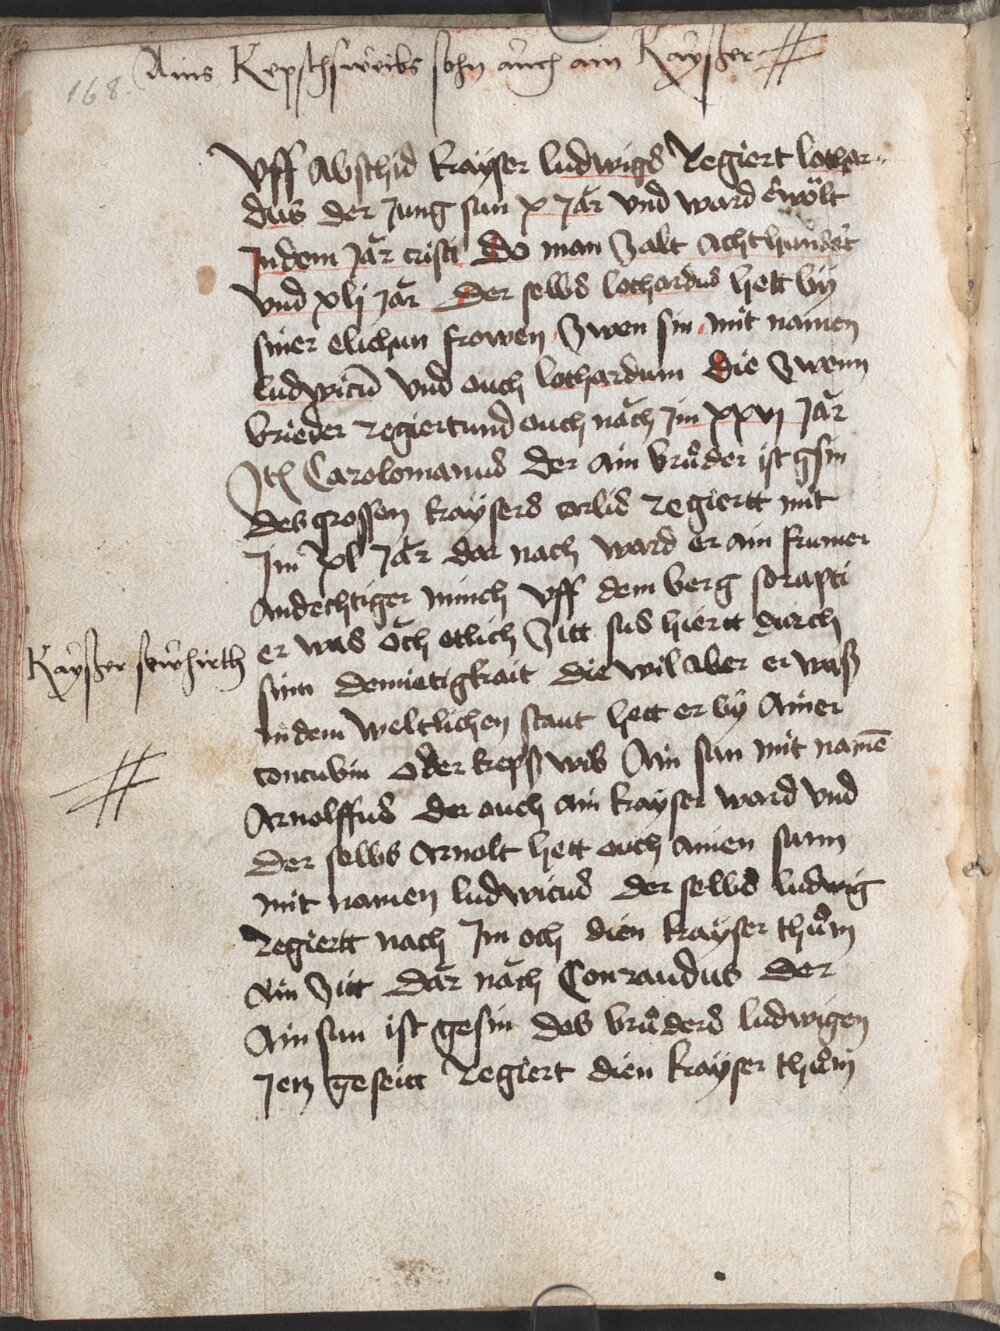 Ains Kepschsweibs sohn auch ain Kaÿsser
168.
Vff abschid kayser ludwigs Regiert lothar„
dus der Jung sun x Jar vnd ward erwölt
Indem Jar cristi do man zalt achthundert
vnd xlj jar der selbs lothardus hett by
siner elichun frowen zwen sin mit namen
ludwicū vnd ouch lothardum die zwenn
brieder regiertund ouch nach Jm xxvj Jar
Itē Carolomanus der ain bruͦder ist gsin
des grossen kaysers carlis regiertt mit
Jm xl Jar dar nach ward er ain frumer
andechtiger minch vff dem berg sorapti
er was och etlich zitt sus hiertt durch
Kaÿsser sewhirth
sinn demietigkait die wil aber er was
Indem weltlichen staut hett er by ainer
concubin oder kepß wib Ain sun mit namē
Arnolffus der ouch ain kayser ward vnd
der selbs arnolt hett ouch ainen sunn
mit namen ludwicus der selbs ludwig
regiertt nach Jm och dien kayser thuͦm
ain zitt dar nach Conraudus der
Ain sun ist gesin des bruͦders ludwigen
Jetz geseitt regiert dien kayser thuͦm